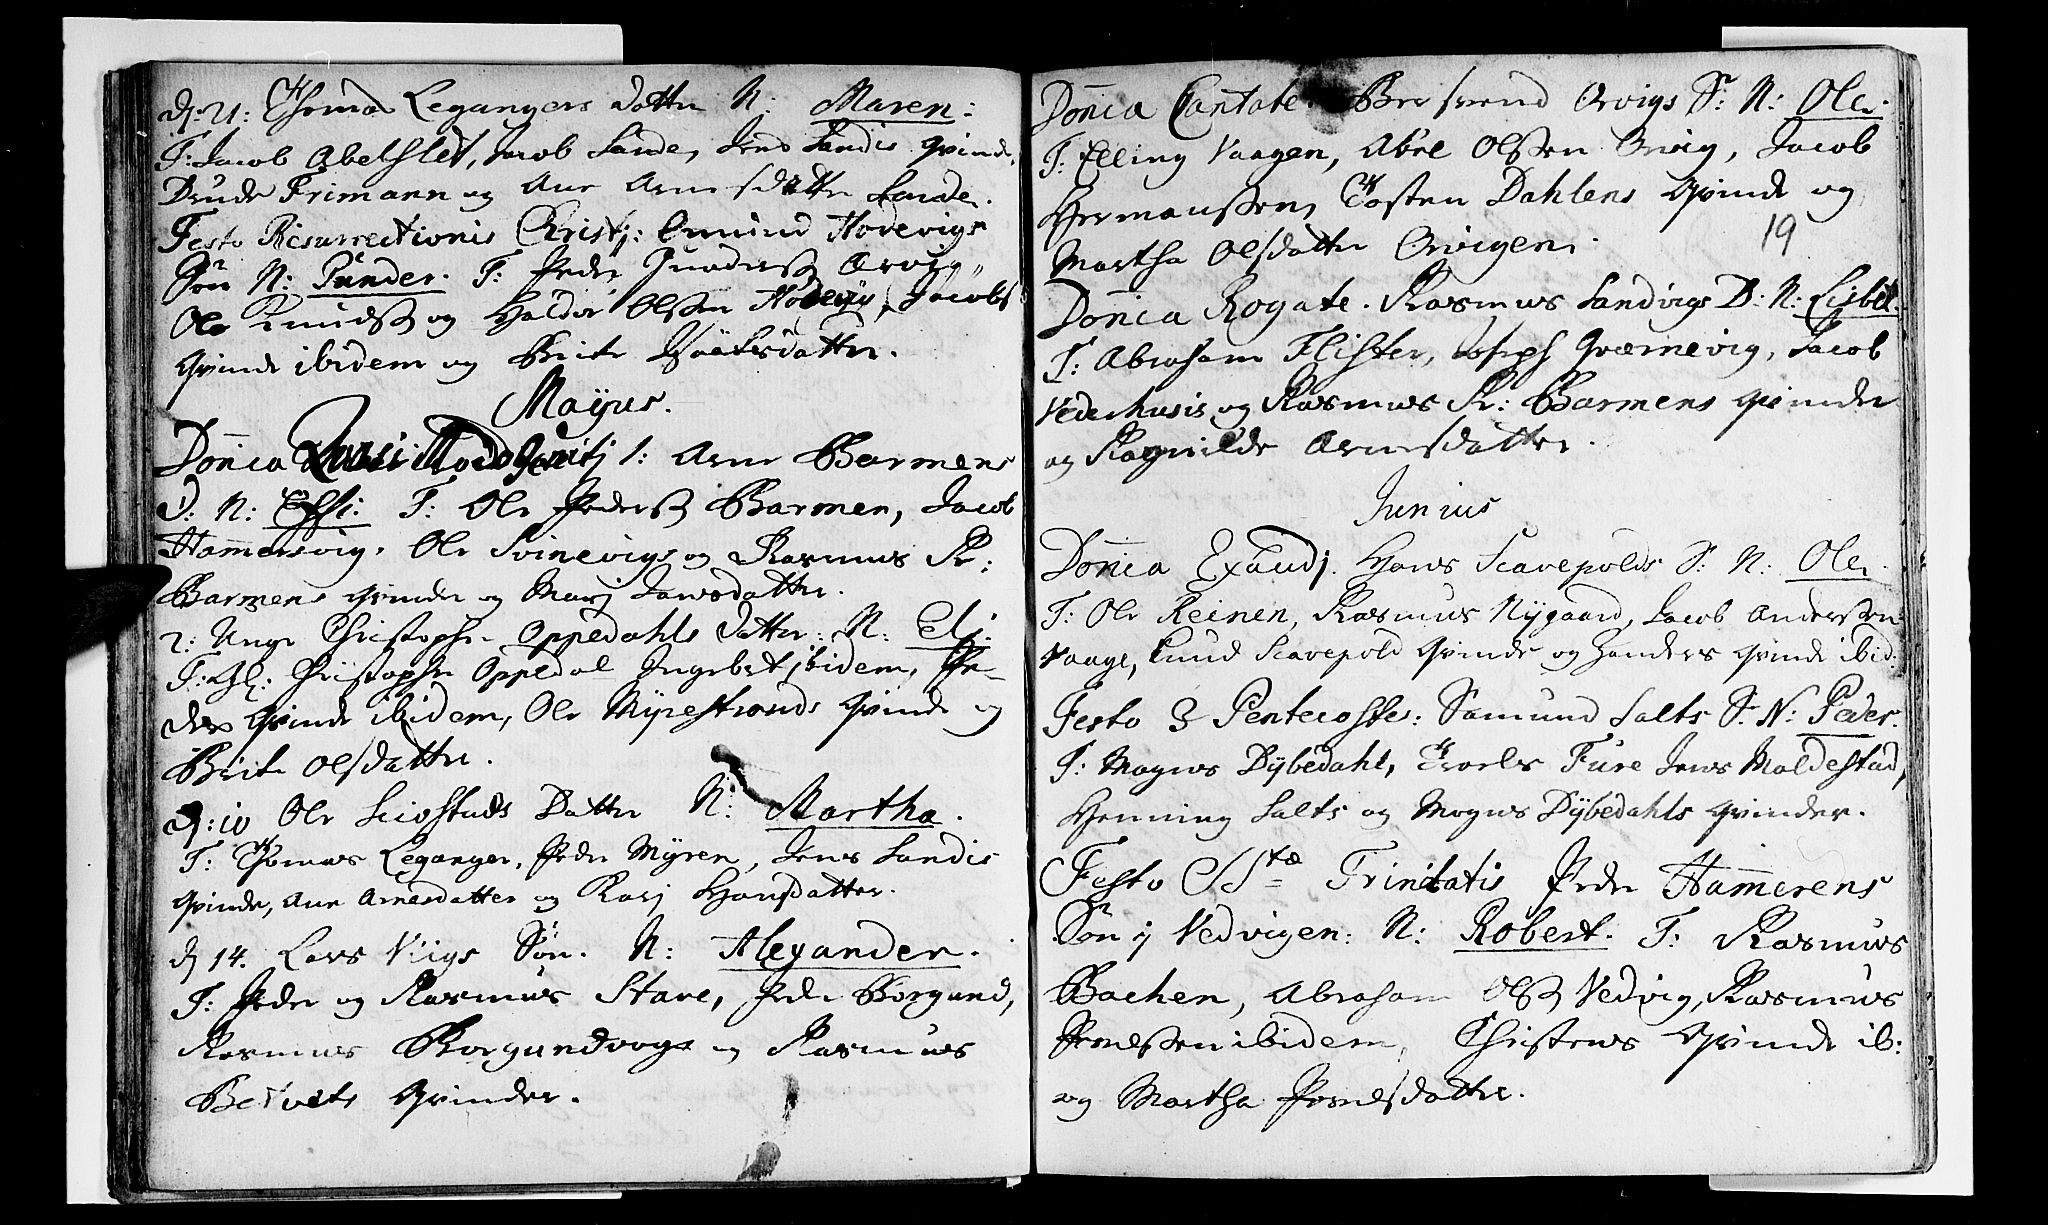 d: 21: Thomas Legangers datter N: Maren:
F: Jacob Abelslet, Jacob Sande, Jens Sandis qvinde,
Drude Frimann og Ane Arnesdatter Sande.
Festo Resurrectionis Christj: Omund Hodevigs
Søn N: Gunder. F: Peder Gunderss Ørvig
Ole Knudss og Haldor Olssen Hodevig, Jacobs
qvinde ibidem og Brite datter.
Majus.
Dom̄ca Qvasi Modo Genitj 1: Arne Barmens
D: N: F: Ole Pederss Barmen, Jacob
Ham̄ersvig, Ole Svinevigs og Rasmus R:
Barmens qvinder og Marj Jansdatter.
2: Unge Christopher Oppedahls datter: N: Eli:
F: Gl: Christopher Oppedal Ingebret ibidem, Pe-
ders qvinde ibidem, Ole Myrestrands qvinde og
Brite Olsdatter.
d: 10 Ole Datter N: Martha.
F: Thomas Leganger, Peder Myren, Jens Sandis
qvinde, Ane Arnesdatter og Karj Hansdatter.
d 14. Lars Viigs Søn. N: Alexander.
F: Peder og Rasmus Stave, Peder Borgund,
Rasmus Borgundvogs og Rasmus
qvinder.
Dom̄ca Cantate. Ørvigs S: N: Ole.
F: Elling Vaagen, Abel Olssen Ørvig, Jacob
Hermanssen, Tosten Dahlens qvinde og
19
Martha Olsdatter Ørvigen.
Dom̄ca Rogate. Rasmus Sandvigs D: N: Lisbet.
F: Abraham Flister, Joseph Qvernevig, Jacob
Vedershusis og Rasmus R: Barmens qvinder
og Ragnilde Arnesdatter.
Junius
Dom̄ca Exaudj. Hans Scarepolds S: N: Ole.
F: Ole Reinen, Rasmus Nygaard, Jacob Anderssen
Vaage, Knud Scarepold qvinde og Handers qvinde ibid:
Festo 3 Pentecostes: Samund Salts S: N: Peder.
F: Mogns Dybedahl, Troels Fure Jens Maldestad,
Henning Salts og Mogns Dybedahls qvinder.
Festo SStæ Trinitatis Peder Ham̄erens
Søn j Vedvigen: N: Robert. F: Rasmus
Bachen, Abraham Olss Vedvig, Rasmus
ibidem, Christens qvinde ib:
og Martha datter.